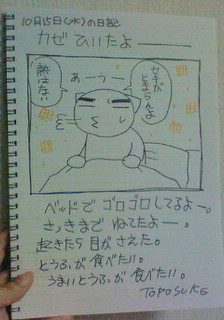 10月15日(水)の日記
カゼひいたよ———
セキがとまらんよ
あーうー
熱はない
ベッドでゴロゴロしてるよー。
さっきまでねてたよー。
起きたら目がさえた。
とうふが食べたい。
うまいとうふが食べたい。
TOPOSUKE